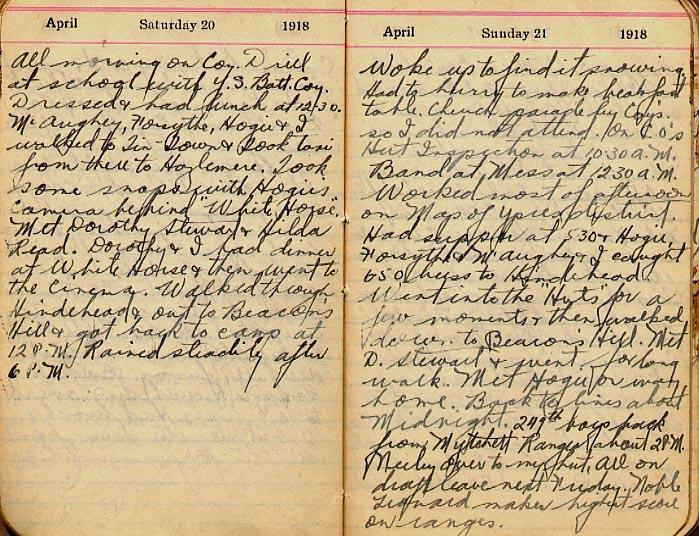 April Saturday 20 1918
All morning on Coy. Drill
at school with Y.S. Batt. Coy.
Dressed & had lunch at 12.30.
McAughey, Forsythe, Hogie & I
walked to Tin Town & took taxi
from there to Hazlemere. Took
some snaps with Hogie's
camera behind "White Horse".
Met Dorothy Stewart & Hilda
Read. Dorothy & I had dinner
at White Horse & then went to
the Cinema. Walked through
Hindehead & out to Beacon's
Hill & got back to camp at
12 P.M. Rained steadily after
6 P.M.
April Sunday 21 1918
Woke up to find it snowing.
Had to hurry to make breakfast
table. Church parade by Coy's.
so I did not attend. On C.O's
Hut Inspection at 10.30 A.M.
Band at Mess at 12.30 A.M.
Worked most of afternoon
on Map of Ypres district.
Had supper at 5.30 & Hogie,
Forsythe & McAughey & I caught
6.50 buss to Hindehead.
Went into the "Huts" for a
few moments & then walked
down to Beacon's Hill. Met
D. Stewart & went for long
walk. Met Hogie on way
home. Back to lines about
Midnight. 249th boys back
from Mytchett Ranges about 2 P.M.
over to my hut. All on
draft leave next Friday. Noble
makes highest score
on ranges.